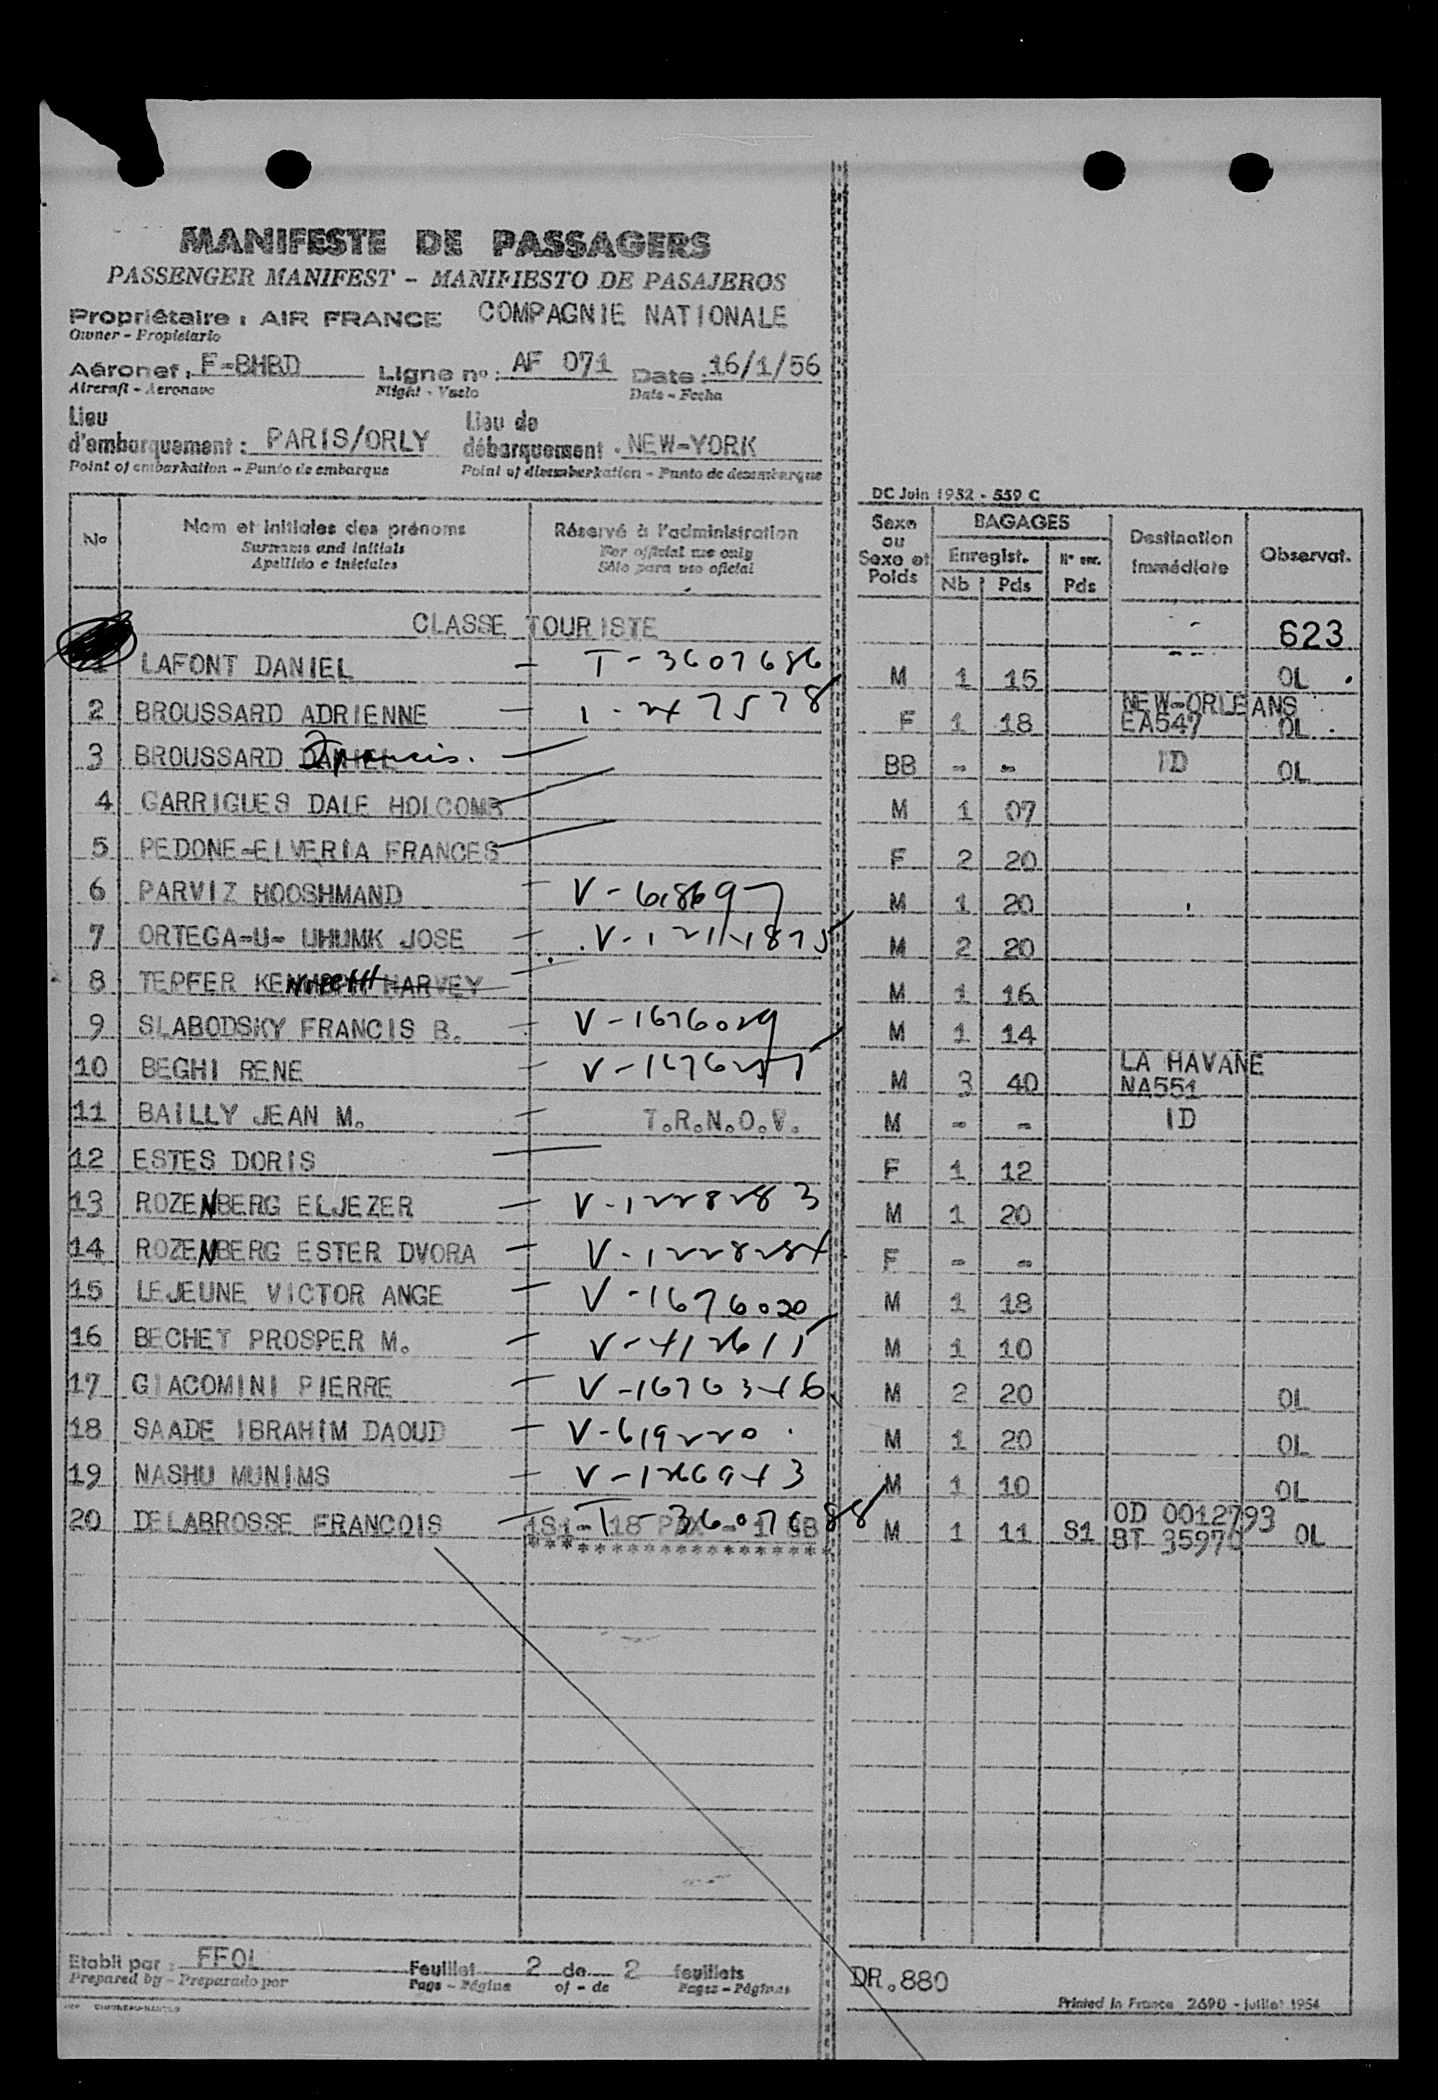 MANIFESTE DE PASSAGERS
PASSENGER MANIFEST - MANIFIESTO DE PASAJEROS
Propriétaire : AIR FRANCE COMPAGNIE NATIONALE
Owner - Propietario
Aéronef : F-BHBD Ligne no : AF 071 Date : 16/1/56
Aircraft - Aeronave Flight - Vuelo Date - Fecha
Lieu d'embarquement : PARIS/ORLY Lieu de débarquement : NEW-YORK
Point of embarkation - Punto de embarque Point of disembarkation - Punto de desembarque
DC Juin 1952 - 559 C
No Nom et initiales des prénoms Réservé à l'administration Sexe ou Sexe et Poids BAGAGES Destination immédiate Observat.
Surname and initials For official use only Enregist. No enr.
Apellido e iniciales Sólo para uso oficial Nb Pds Pds
CLASSE TOURISTE 623
LAFONT DANIEL - T-3607686 M 1 15 OL
2 BROUSSARD ADRIENNE - F 1 18 NEW-ORLEANS EA547 OL
3 BROUSSARD DANIEL Francis. BB - - ID OL
4 GARRIGUES DALE HOLCOMB M 1 07
5 PEDONE-ELVERIA FRANCES F 2 20
6 PARVIZ HOOSHMAND - V-618697 M 1 20
7 ORTEGA-U- UHUMK JOSE - M 2 20
8 TEPFER HARVEY M 1 16
9 SLABODSKY FRANCIS B. - V-1676029 M 1 14
10 BEGHI RENE - V-1676257 M 3 40 LA HAVANE NA551
11 BAILLY JEAN M. - T.R.N.O.V. M - - ID
12 ESTES DORIS F 1 12
13 ROZENBERG ELJEZER - V-1228283 M 1 20
14 ROZENBERG ESTER DVORA - V-1228284 F - -
15 LEJEUNE VICTOR ANGE - V-1676020 M 1 18
16 BECHET PROSPER M. - V-412615 M 1 10
17 GIACOMINI PIERRE - V-1676346 M 2 20 OL
18 SAADE IBRAHIM DAOUD - V-619220 M 1 20 OL
19 NASHU MUNIMS - V-1266943 M 1 10 OL
20 DELABROSSE FRANCOIS - T-3607688 M 1 11 S1 OD 0012793 BT 35970 OL
1S1- 18 PAX - 1 BB
Etabli par : FFOL Feuillet 2 de 2 feuillets DR.880
Prepared by - Preparado por Page - Página of - de Pages - Páginas
Printed in France 2690 - juillet 1954